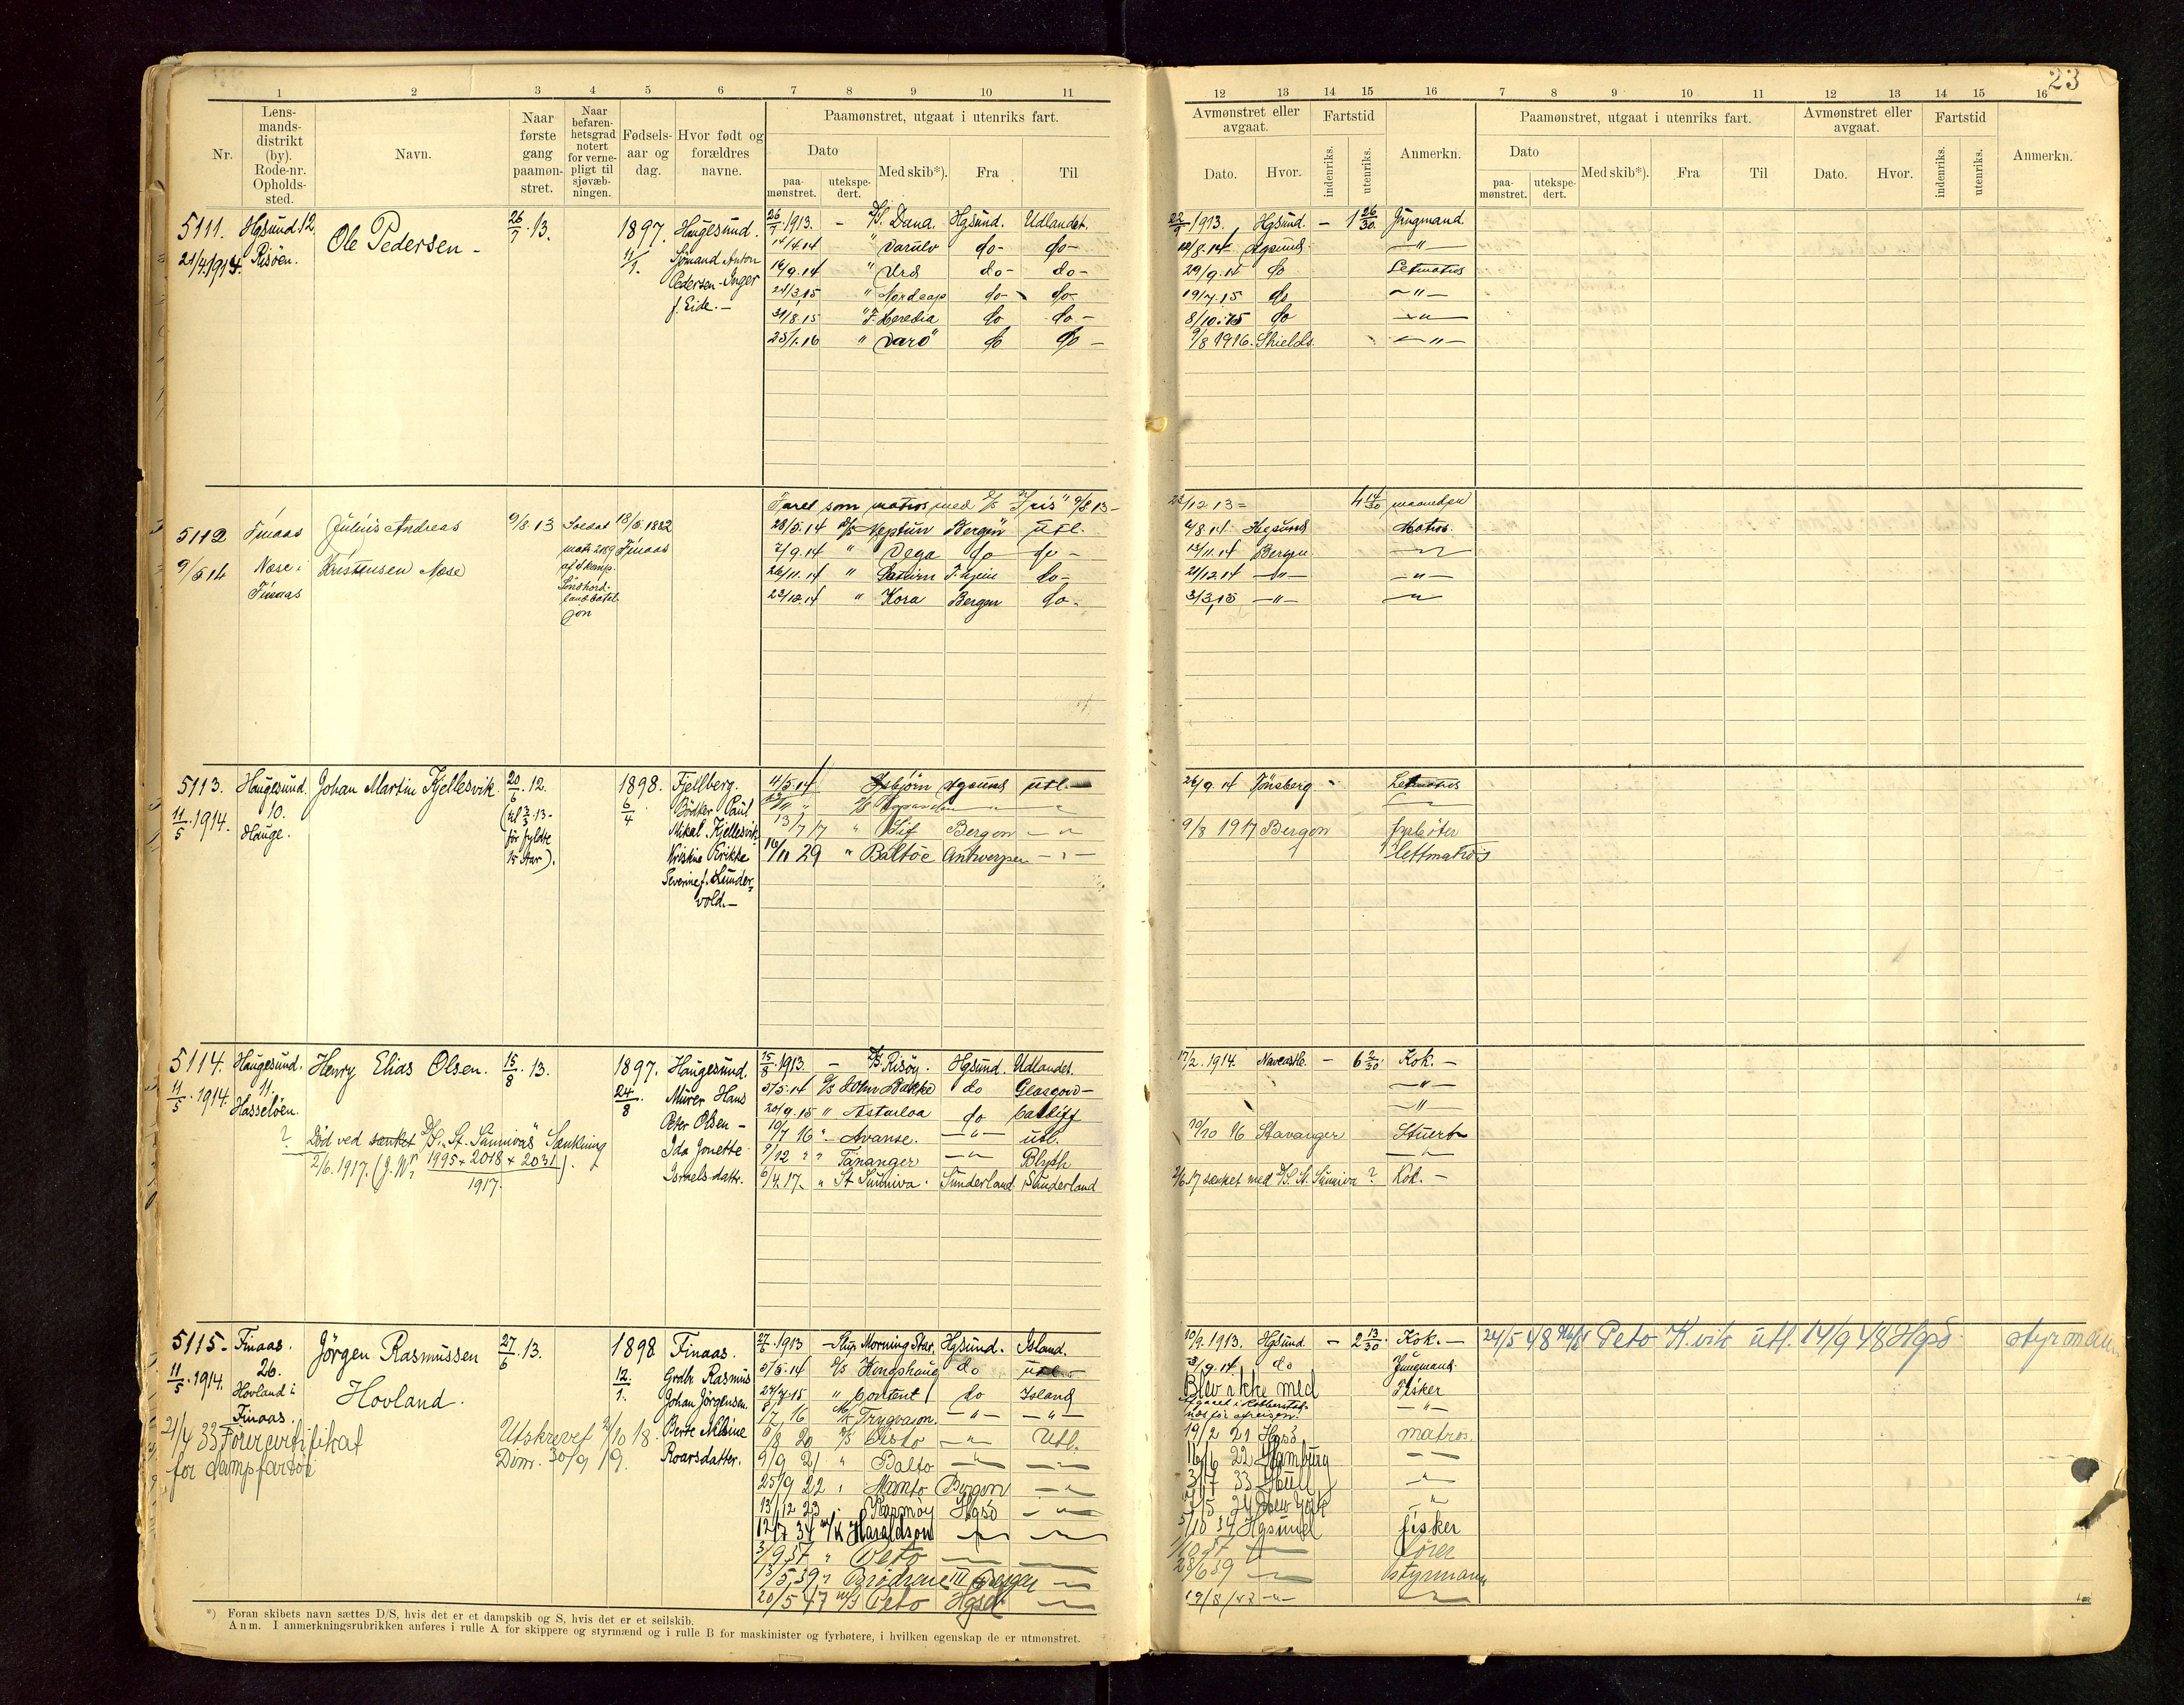 23
1 2 3 4 5 6 7 8 9 10 11
12 13 14 15 16 7 8 9 10 11 12 13 14 15 16
Nr.
Lens-
mands-
distrikt
(by).
Rode-nr.
Opholds-
sted.
Navn.
Naar
første
gang
paamøn-
stret.
Naar
befaren-
hetsgrad
notert
for verne-
pligt til
sjøvæb-
ningen.
Fødsels-
aar og
dag.
Hvor født og
forældres
navne.
Paamønstret, utgaat i utenriks fart.
Dato
paa-
mønstret.
utekspe-
dert.
Med skib*).
Fra
Til
Avmønstret eller
avgaat.
Dato.
Hvor.
Fartstid
indenriks.
utenriks.
Anmerkn.
Paamønstret, utgaat i utenriks fart.
Dato
paa-
mønstret.
utekspe-
dert.
Med skib*).
Fra
Til
Avmønstret eller
avgaat.
Dato.
Hvor.
Fartstid
indenriks.
utenriks.
Anmerkn.
5111.
21/4.1914.
Hgsund.12.
Risöen.
Ole Pedersen -
26/7.13.
1897.
11/1.
Haugesund.
Sjömand Anton
Pedersen - Inger
f. Eide. -
26/7.1913. - D/S. Dana. Hgsund. Udlandet. 22/9.1913. Hgsund. - 1 26/30. Jüngmand.
14/4.14 " Varulv do- do- 10/8.14 Hgsund -"-
16/9.14 " Urd do- do- 29/9.14 do Letmatros
24/3.15 " Nordcap do- do- 19/7.15 do -"-
31/8.15 " F. Heredia do do- 8/10.15 do -"-
25/1.16 " Varo do do- 9/8 1916. Shields. -"-
5112
9/5 14
Finaas
Næse i
Finaas
Jülius Andreas
Kristensen Næse
9/8.13
Soldat
matr. 2189
af 4 komp.
Søndhord-
land batal-
jon
18/5.1882
Finaas
Faret som matros med D/S "Iris" 9/8.13- 23/12.13 = 4 14/30 maaneder
28/5.14 D/S Neptun Bergen utl. 6/8.14 Hgsund Matros.
7/9.14 " Vega do do- 13/11.14 Bergen -"-
26/11.14 " Saturn T.hjem do- 21/12.14 -"- -"-
23/12.14 " Kora Bergen do- 3/3.15 -"- -"-
5113.
11/5.1914.
Haugesund.
10.
Hauge.
Johan Martin Kjellesvik.
20/6.12.
för fyldte
15 aar).
1898.
6/4
Fjellberg.
Bödker Paul
Mikal Kjellesvik
Kristine Erikke
Severine f. Lunder-
vold. -
4/5.14 Isbjörn Hgsund utl. 26/9.14 Tönsberg - Letmatros
13/7 17 " Sif Bergen -"- 9/8 1917 Bergen fyrböter
16/11 29 " Baltöe Antwerpen -"- lettmatros
5114.
11/5.1914.
Haugesund.
11.
Hasselöen.
Henry Elias Olsen.
15/8.13.
1897.
24/8
Haugesund.
Mürer Hans
Peter Olsen -
Ida Jonette
Israelsdattr.
? Död ved sænket D/S. "St. Sunnivas" Sænkning
2/6.1917. (J. Nr 1995 + 2018 + 2031/1917).
15/8.1913. - D/S Risöy. Hgsund. Udlandet. 17/2.1914. Newcastle. - 6 2/30. Kok. -
5/5.14 D/S John Bakke do Glasgow- -"-
20/9.15 " Astarloa do Cardiff -"-
10/7 16 " Avanse. -"- utl. 10/10 16 Stavanger Stuert-
9/12 " " Tananger -"- Blyth -"-
6/4.17. " St Sunniva. Sunderland Sunderland 2/6.17 sænket med D/S. St. Sunniva ? Kok. -
5115-
11/5.1914.
Finaas.
26.
Hovland i
Finaas.
Jörgen Rasmussen
Hovland.
27/6.13.
1898
12/1.
Finaas.
Grdbr Rasmus
Johan Jörgensen
Berte Melsine
Roarsdatter.
21/4 33 Förercertifikat
for dampfartöi
Utskrevet 2/10 18.
Dimr. 30/9 19.
27/6.1913 - Slup. Morning Star. Hgsund. Island. 10/9.1913. Hgsund - 2 13/30. Kok. - 24/5 48 Peto K.vik utl. 14/9 48 Hgsd styrmann
5/5.14 D/S Kongshaug do utl. 3/9.14 do Jungmand.
24/7.15 " Content do Island Blev ikke med Fisker
8/7, 16 M/K Trygvason. -"- -"- -"-
6/8 20 D/S Cisto -"- Utl. 19/2 21 Hgsd matros.
9/9 21 " Balto -"- -"- 16/6 22 Hamburg -"-
25/9 22 " Manto Bergen -"- Hull -"-
13/12 23 " Karmöy Hgsd -"- New York -"-
12/7 34 M/K Haraldson -"- -"- 5/10 34 Hgsund fisker
3/9.37 " Peto -"- -"- förer
13/5.39 " Brödrene III Bergen -"- 28/6 39 -"- styrmann
20/5 47 M/S Peto Hgsd -"- 19/8/47 -"- -"-
*) Foran skibets navn sættes D/S, hvis det er et dampskib og S, hvis det er et seilskib.
Anm. I anmerkningsrubrikken anføres i rulle A for skippere og styrmænd og i rulle B for maskinister og fyrbøtere, i hvilken egenskap de er utmønstret.